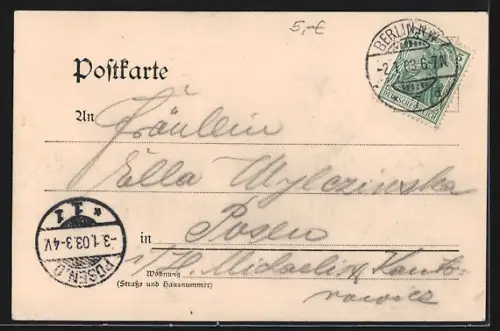 5,-€
BERLIN.N.W.
-2. 03.6-7N
DEUTSCHES REICH
Postkarte
An
Fräulein
Ella Wylczinska
in Posen
Wohnung
(Straße und Hausnummer)
i/H. Michaelis Kanto-
rowicz
* 1 1
-3.1.03.3-4V.
POSEN O